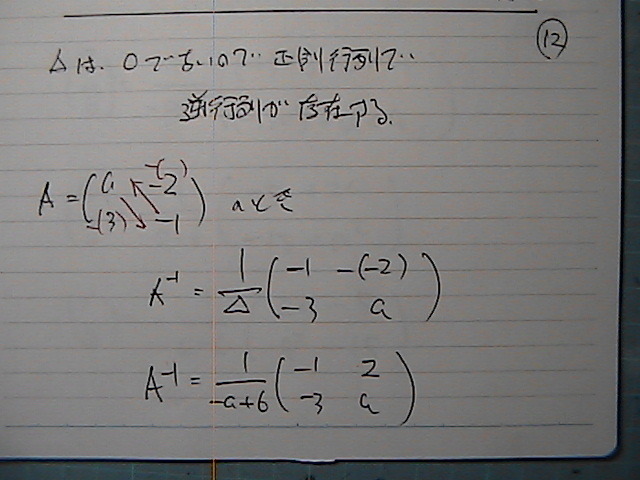 ⑫
Δは、0でないので 正則行列で
逆行列が存在する。
A = (a -2
3 -1) のとき
A⁻¹ = 1/Δ (-1 -(-2)
-3 a)
A⁻¹ = 1/(-a+6) (-1 2
-3 a)